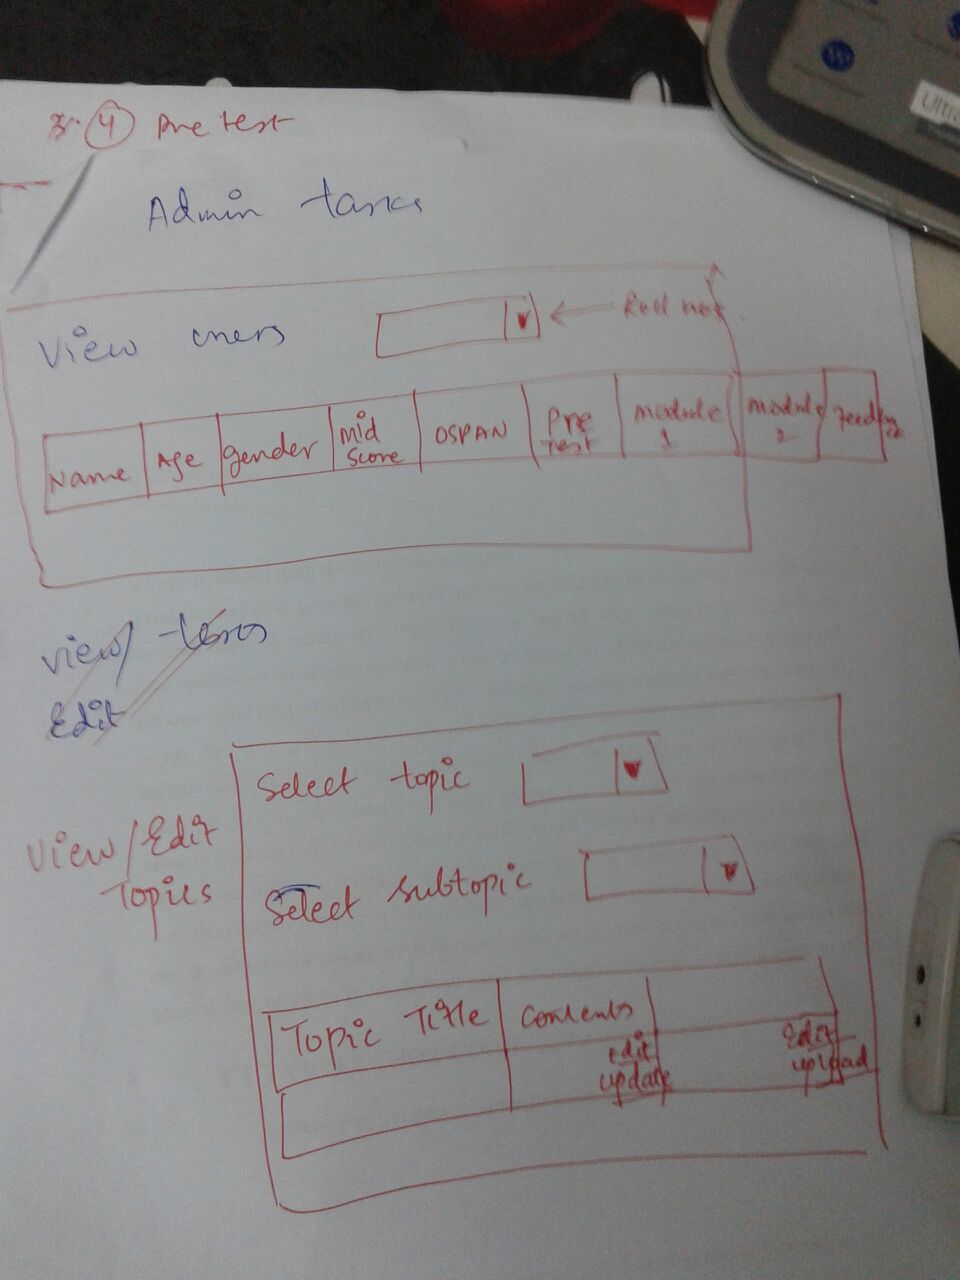 4 Pre test
Admin tasks
View users
Roll nos.
Name Age gender Mid Score OSPAN Pre Test module 1 module 2 Feed
View/
Edit
View/Edit
Topics
Select topic
Select subtopic
Topic Title Contents
Edit update
Edit upload
Ultra